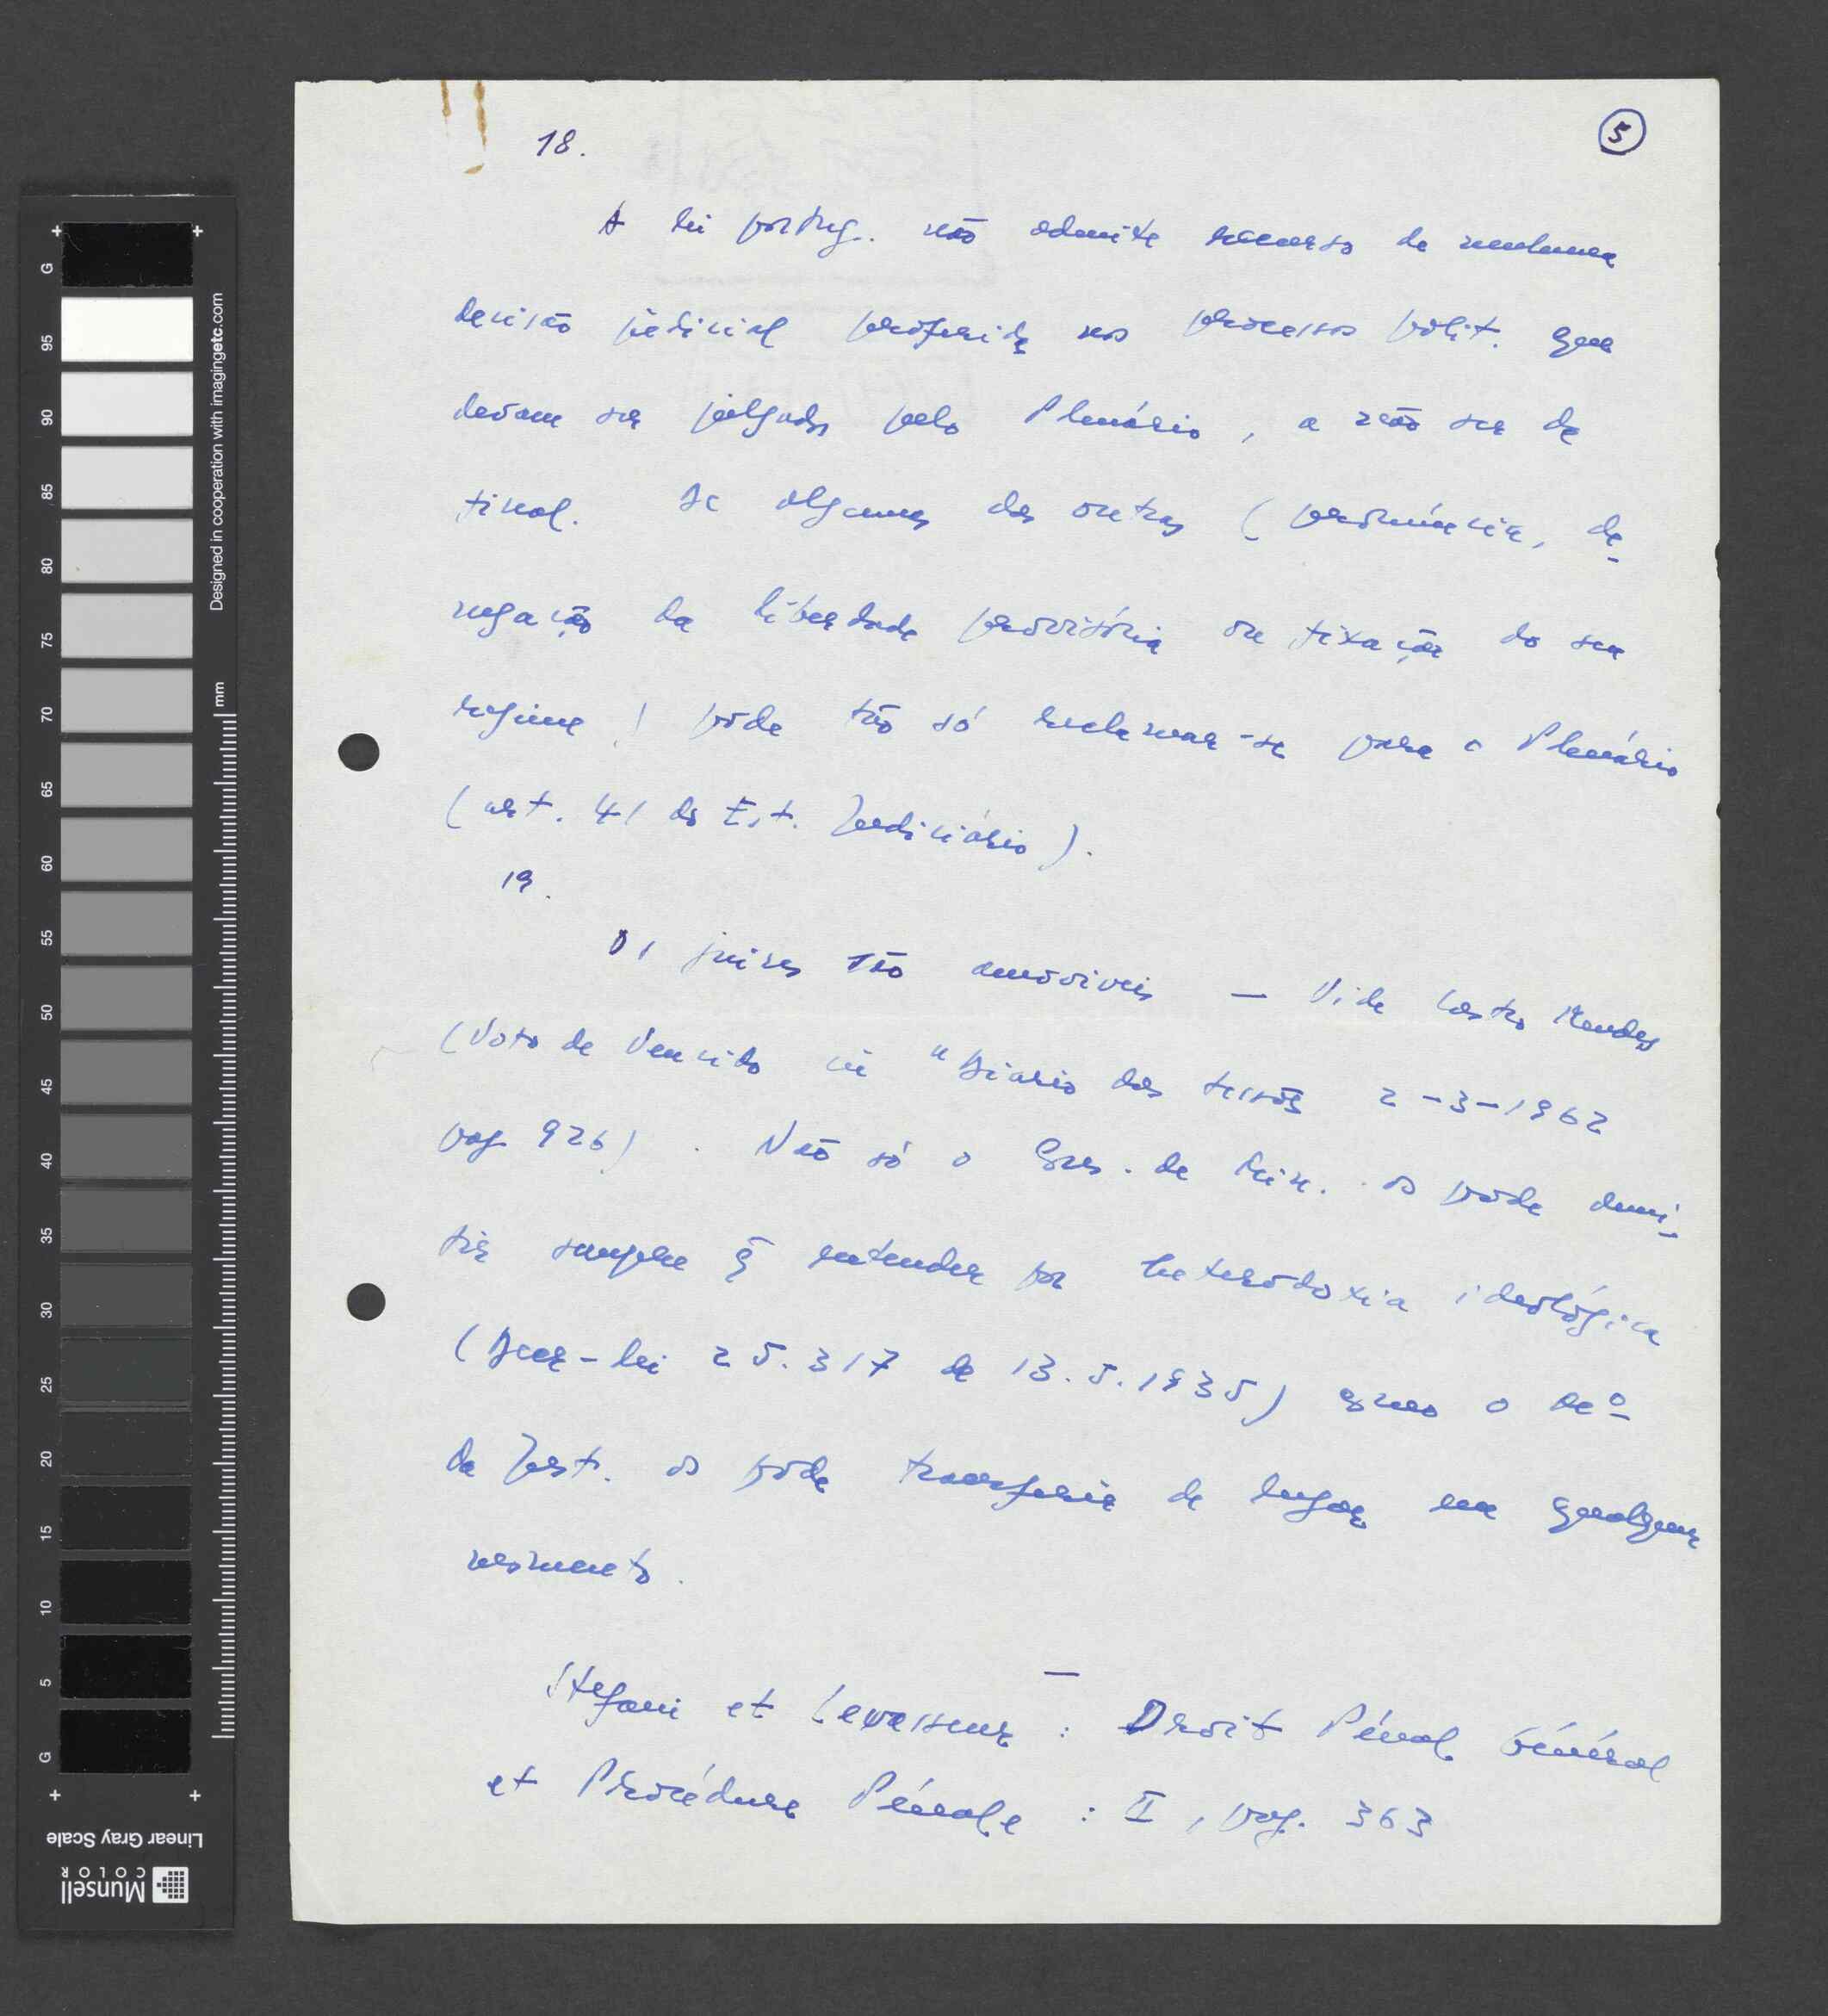 18.
5
A lei portug. não admite recurso de nenhuma
decisão judicial proferida nos processos polit. que
devam ser julgados pelo Plenário, a não ser da
final. De algumas das outras (pronúncia, de-
negação da liberdade provisória ou fixação do seu
regime) pode tão só reclamar-se para o Plenário
(art. 41 do Est. Judiciário).
19.
Os juizes são amoviveis — Vide Castro Mendes
(Voto de Vencido in "Diario das sessões 2-3-1962
pag. 926). Não só o Cons. de Min. os pode demi-
tir sempre q̃ entender por heterodoxia ideológica
(Decr-lei 25.317 de 13.5.1935) como o
da Just. os pode transferir de lugar em qualquer
momento.
—
Stefani et Levasseur : Droit Pénal Général
et Procédure Pénale : II, pag. 363
G 95 90 85 80 75 70 65 60 55 50 45 40 35 30 25 20 15 10 5 G
mm
Designed in cooperation with imagingetc.com
Linear Gray Scale
Munsell
COLOR